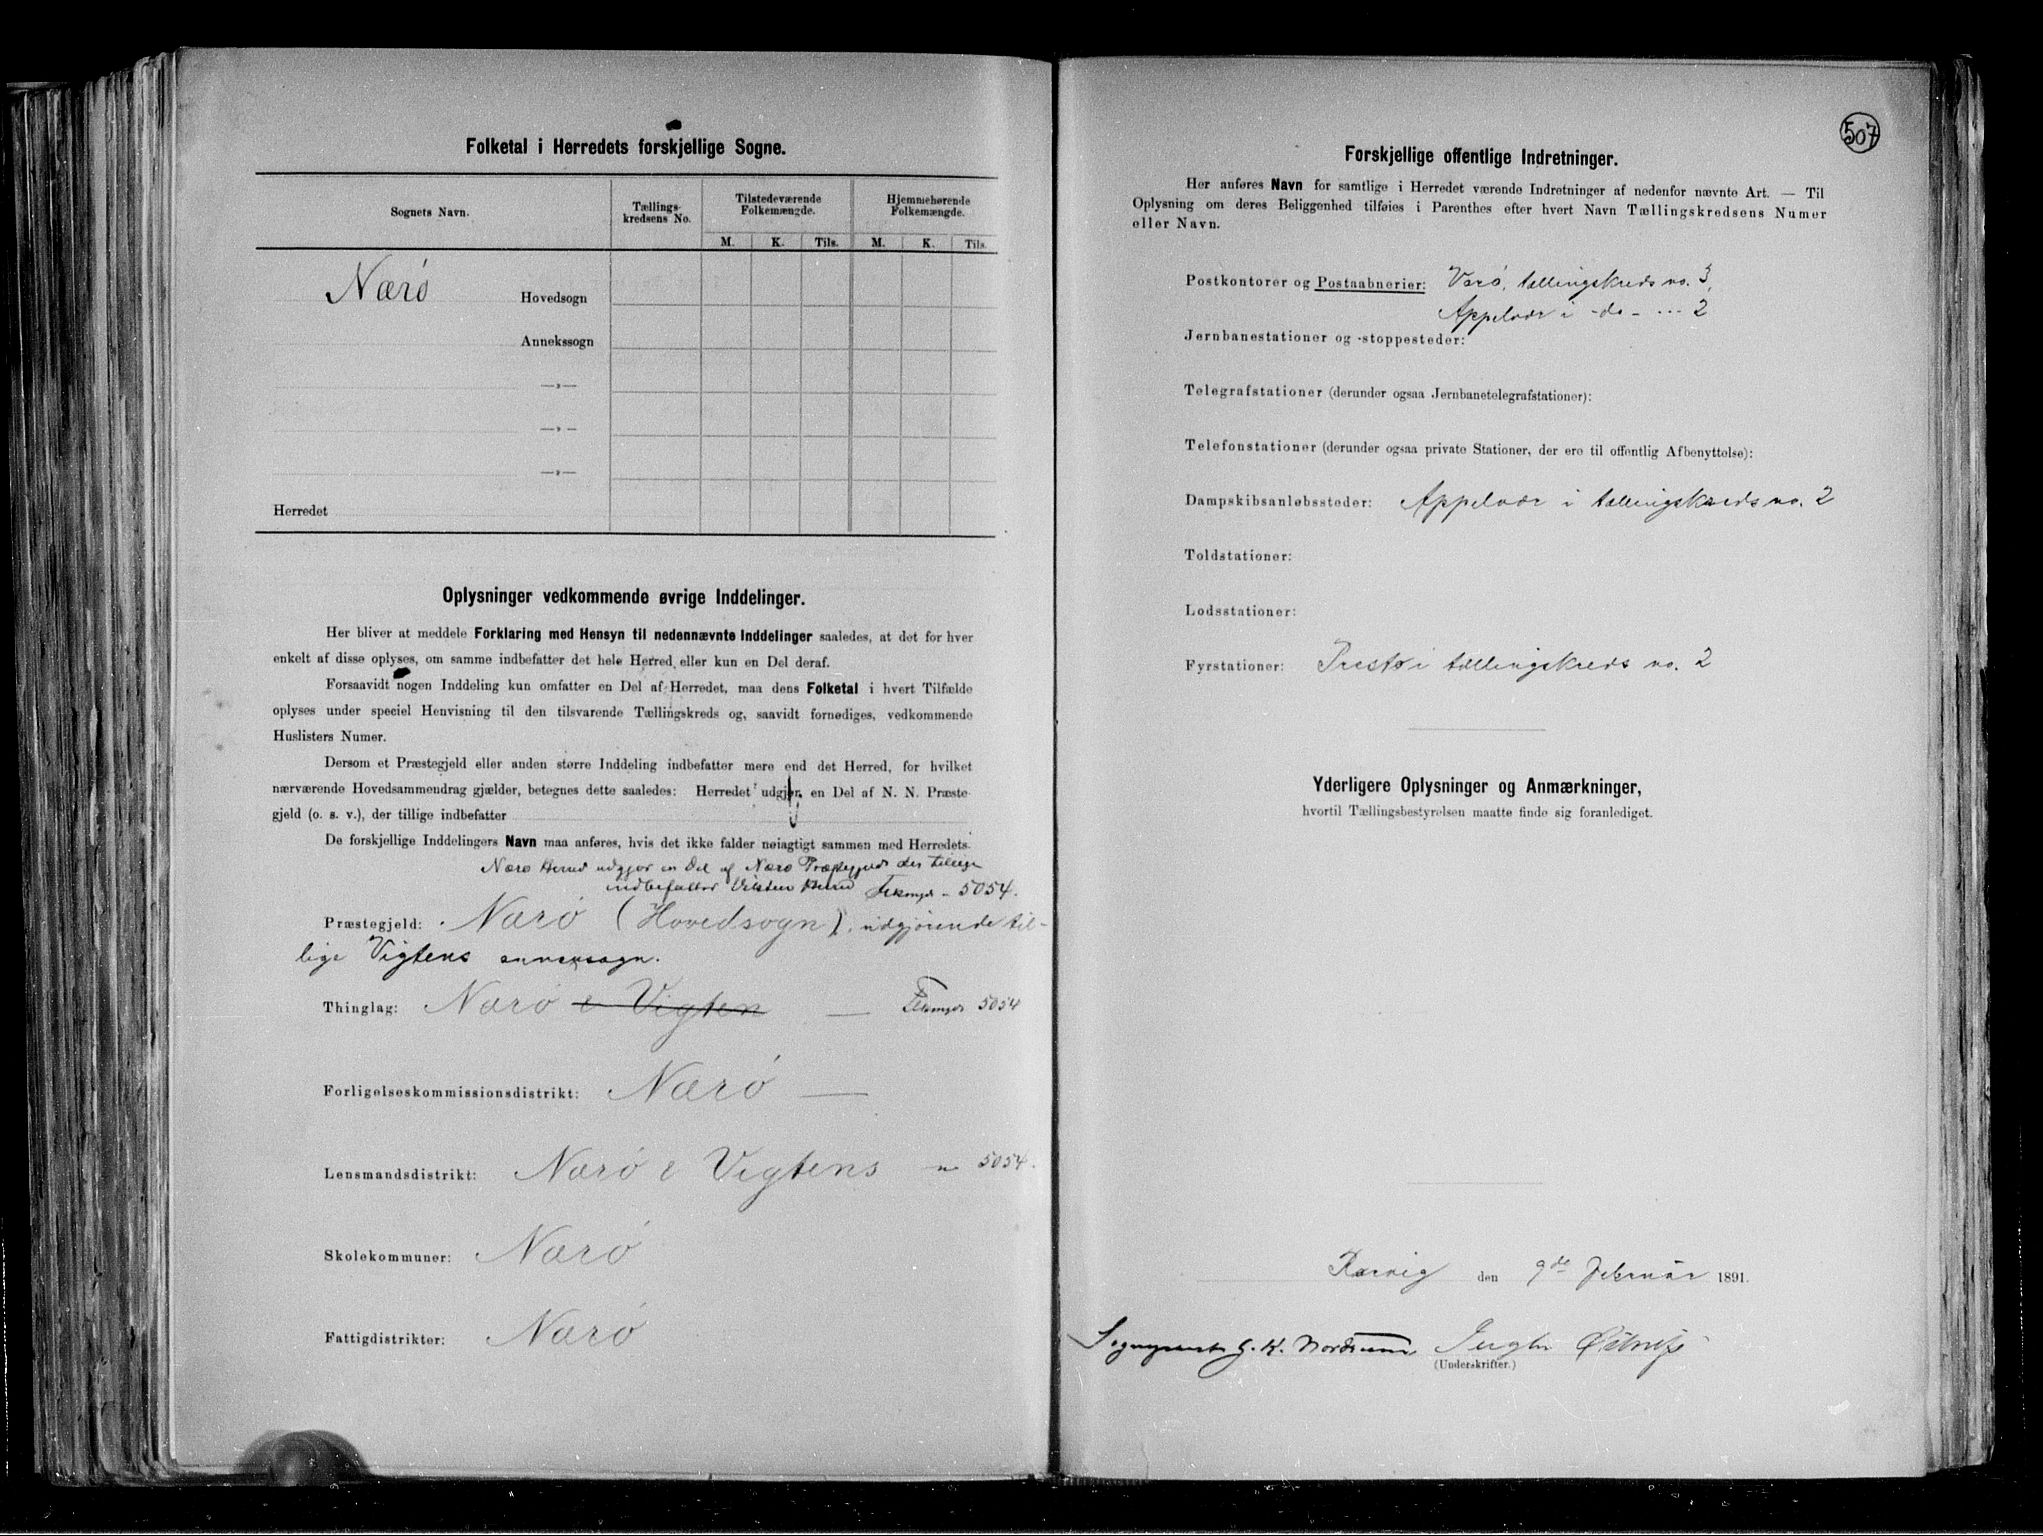 Folketal i Herredets forskjellige Sogne.
Sognets Navn.
Tællings-
kredsens No.
Tilstedeværende
Folkemængde.
Hjemmehørende
Folkemængde.
M. K. Tils. M. K. Tils.
Nærø Hovedsogn
Annekssogn
—»—
—»—
—»—
Herredet
Oplysninger vedkommende øvrige Inddelinger.
Her bliver at meddele Forklaring med Hensyn til nedennævnte Inddelinger saaledes, at det for hver
enkelt af disse oplyses, om samme indbefatter det hele Herred eller kun en Del deraf.
Forsaavidt nogen Inddeling kun omfatter en Del af Herredet, maa dens Folketal i hvert Tilfælde
oplyses under speciel Henvisning til den tilsvarende Tællingskreds og, saavidt fornødiges, vedkommende
Huslisters Numer.
Dersom et Præstegjeld eller anden større Inddeling indbefatter mere end det Herred, for hvilket
nærværende Hovedsammendrag gjælder, betegnes dette saaledes: Herredet udgjør en Del af N. N. Præste-
gjeld (o. s. v.), der tillige indbefatter
De forskjellige Inddelingers Navn maa anføres, hvis det ikke falder nøiagtigt sammen med Herredets.
Nærø Herred udgjør en Del af Nærø Præstegjeld der tillige
indbefatter Herred 5054.
Præstegjeld: Nærø (Hovedsogn), udgjørende til-
lige Vigtens annexsogn.
Thinglag: Nærø & Vigten — 5054
Forligelseskommissionsdistrikt: Nærø —
Lensmandsdistrikt: Nærø & Vigtens 5054.
Skolekommuner: Nærø
Fattigdistrikter: Nærø
507
Forskjellige offentlige Indretninger.
Her anføres Navn for samtlige i Herredet værende Indretninger af nedenfor nævnte Art. — Til
Oplysning om deres Beliggenhed tilføies i Parenthes efter hvert Navn Tællingskredsens Numer
eller Navn.
Postkontorer og Postaabnerier: Værø, tællingskreds no. 3,
Appelvær i -do- ... 2
Jernbanestationer og -stoppesteder:
Telegrafstationer (derunder ogsaa Jernbanetelegrafstationer):
Telefonstationer (derunder ogsaa private Stationer, der ere til offentlig Afbenyttelse):
Dampskibsanløbssteder: Appelvær i tællingskreds no. 2
Toldstationer:
Lodsstationer:
Fyrstationer: Prestø i tællingskreds no. 2
Yderligere Oplysninger og Anmærkninger,
hvortil Tællingsbestyrelsen maatte finde sig foranlediget.
Rørvig den 9de Februar 1891.
Sogneprest G. K.
(Underskrifter.)